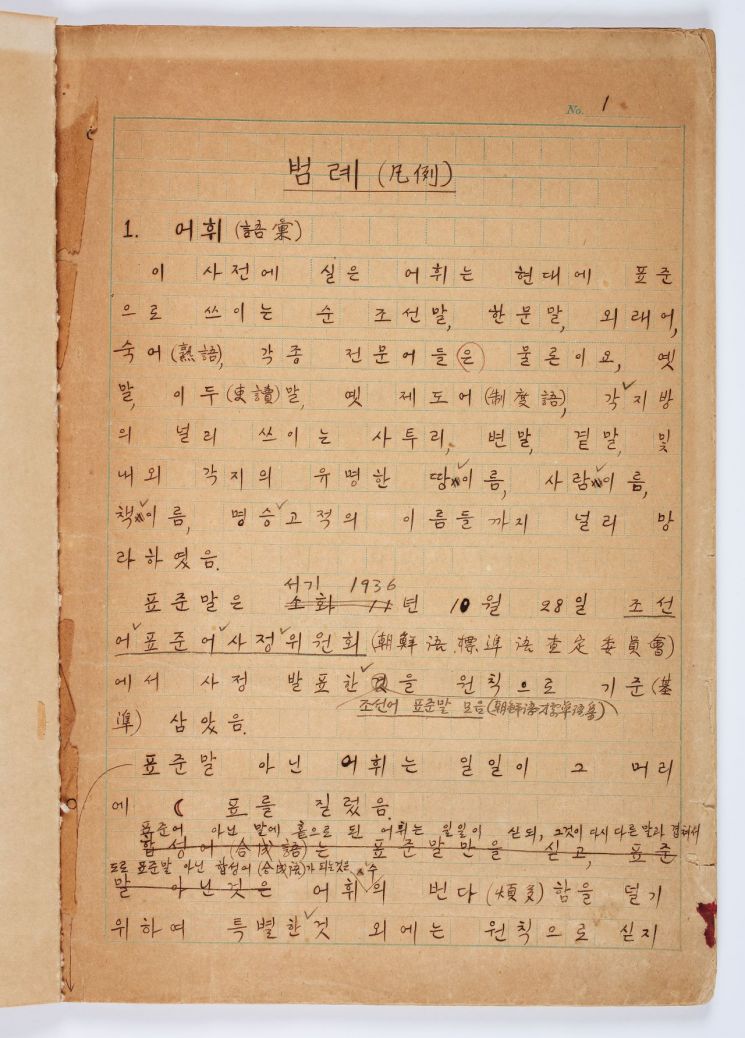 No. 1
범례 (凡例)
1. 어휘 (語彙)
이 사전에 실은 어휘는 현대에 표준
으로 쓰이는 순 조선말, 한문말, 외래어,
숙어 (熟語), 각종 전문어들은 물론이요, 옛
말, 이두 (吏讀)말, 옛 제도어 (制度語), 각 지방
의 널리 쓰이는 사투리, 변말, 곁말, 및
내외 각지의 유명한 땅 이름, 사람 이름,
책 이름, 명승 고적의 이름들까지 널리 망
라하였음.
서기 1936
표준말은 소화 11년 10월 28일 조선
어 표준어 사정 위원회 (朝鮮語 標準語 査定 委員會)
에서 사정 발표한 을 원칙으로 기준 (基
조선어 표준말 모음 (朝鮮語 標準語)
準) 삼았음.
표준말 아닌 어휘는 일일이 그 머리
에 ☾ 표를 질렀음.
표준어 아닌 말에 홑으로 된 어휘는 일일이 싣되, 그것이 다시 다른 말과 겹쳐서
합성어 (合成語)는 표준말만을 싣고, 표준
도로 표준말 아닌 합성어 (合成語)가 되는것은 수
말 아닌것은 어휘의 번다 (煩多)함을 덜기
위하여 특별한 것 외에는 원칙으로 싣지